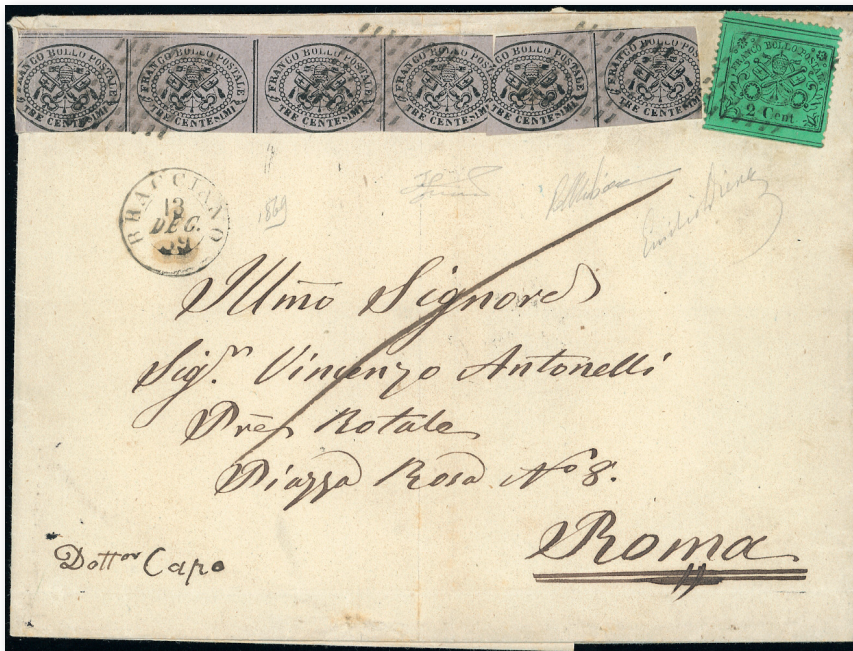 FRANCO BOLLO POSTALE
TRE CENTESIMI
FRANCO BOLLO POSTALE
TRE CENTESIMI
FRANCO BOLLO POSTALE
TRE CENTESIMI
FRANCO BOLLO POSTALE
TRE CENTESIMI
FRANCO BOLLO POSTALE
TRE CENTESIMI
FRANCO BOLLO POSTALE
TRE CENTESIMI
FRANCO BOLLO POSTALE
2 Cent
BRACCIANO
13
DEC.
69
1869
Emilio Diena
Illm̃o Signore
Sig.r Vincenzo Antonelli
Rotale
Piazza Rosa No 8.
Roma
Dottor Capo